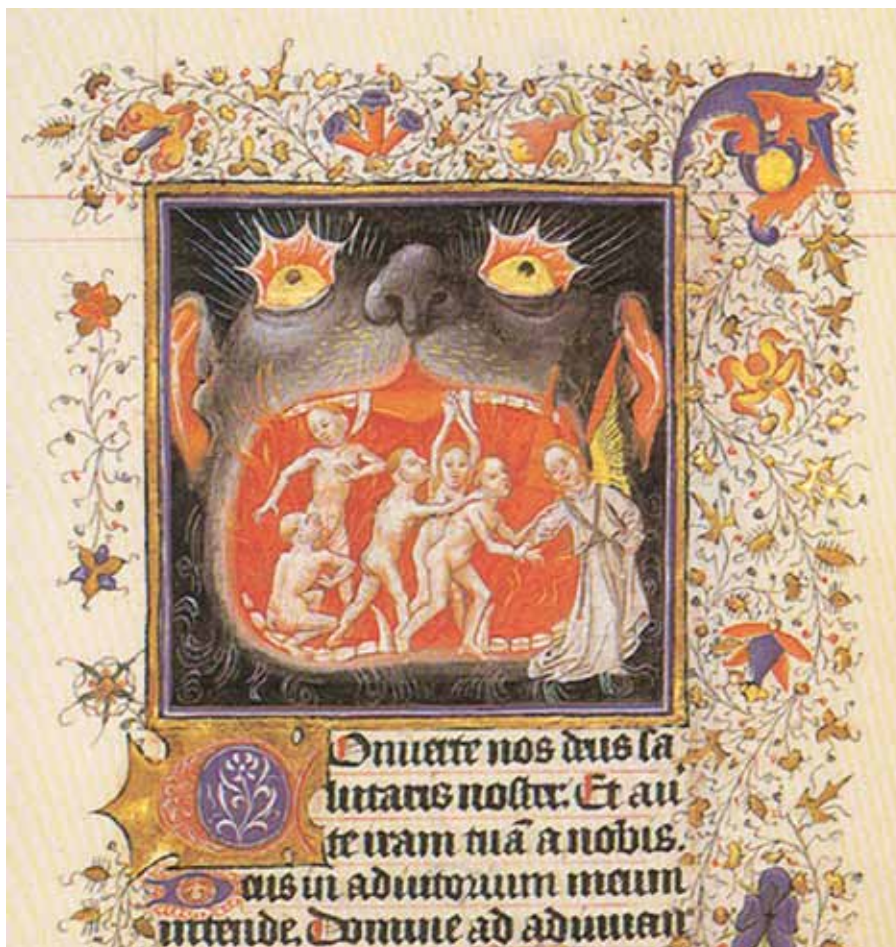 Conuerte nos deus sa
lutaris noster. Et au
te iram tuã a nobis.
Deus in adiutorium meum
intende. Domine ad adiuuan